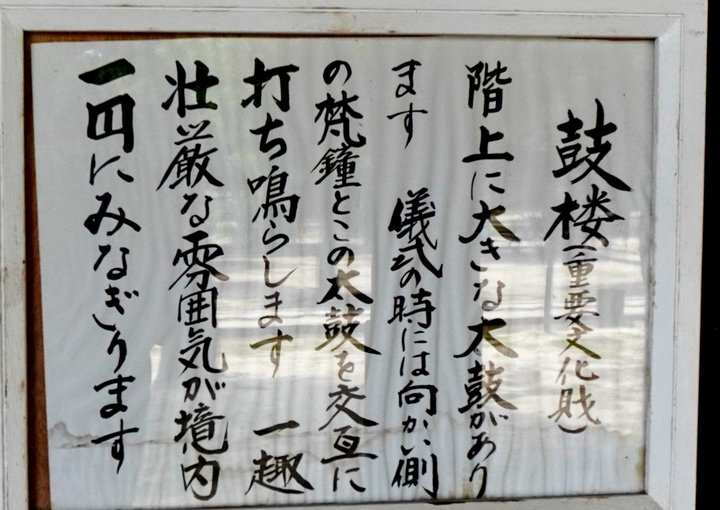 鼓楼(重要文化財)
階上に大きな太鼓があり
ます 儀式の時には向かい側
の梵鐘とこの太鼓を交互に
打ち鳴らします 一趣
壮厳な雰囲気が境内
一円にみなぎります